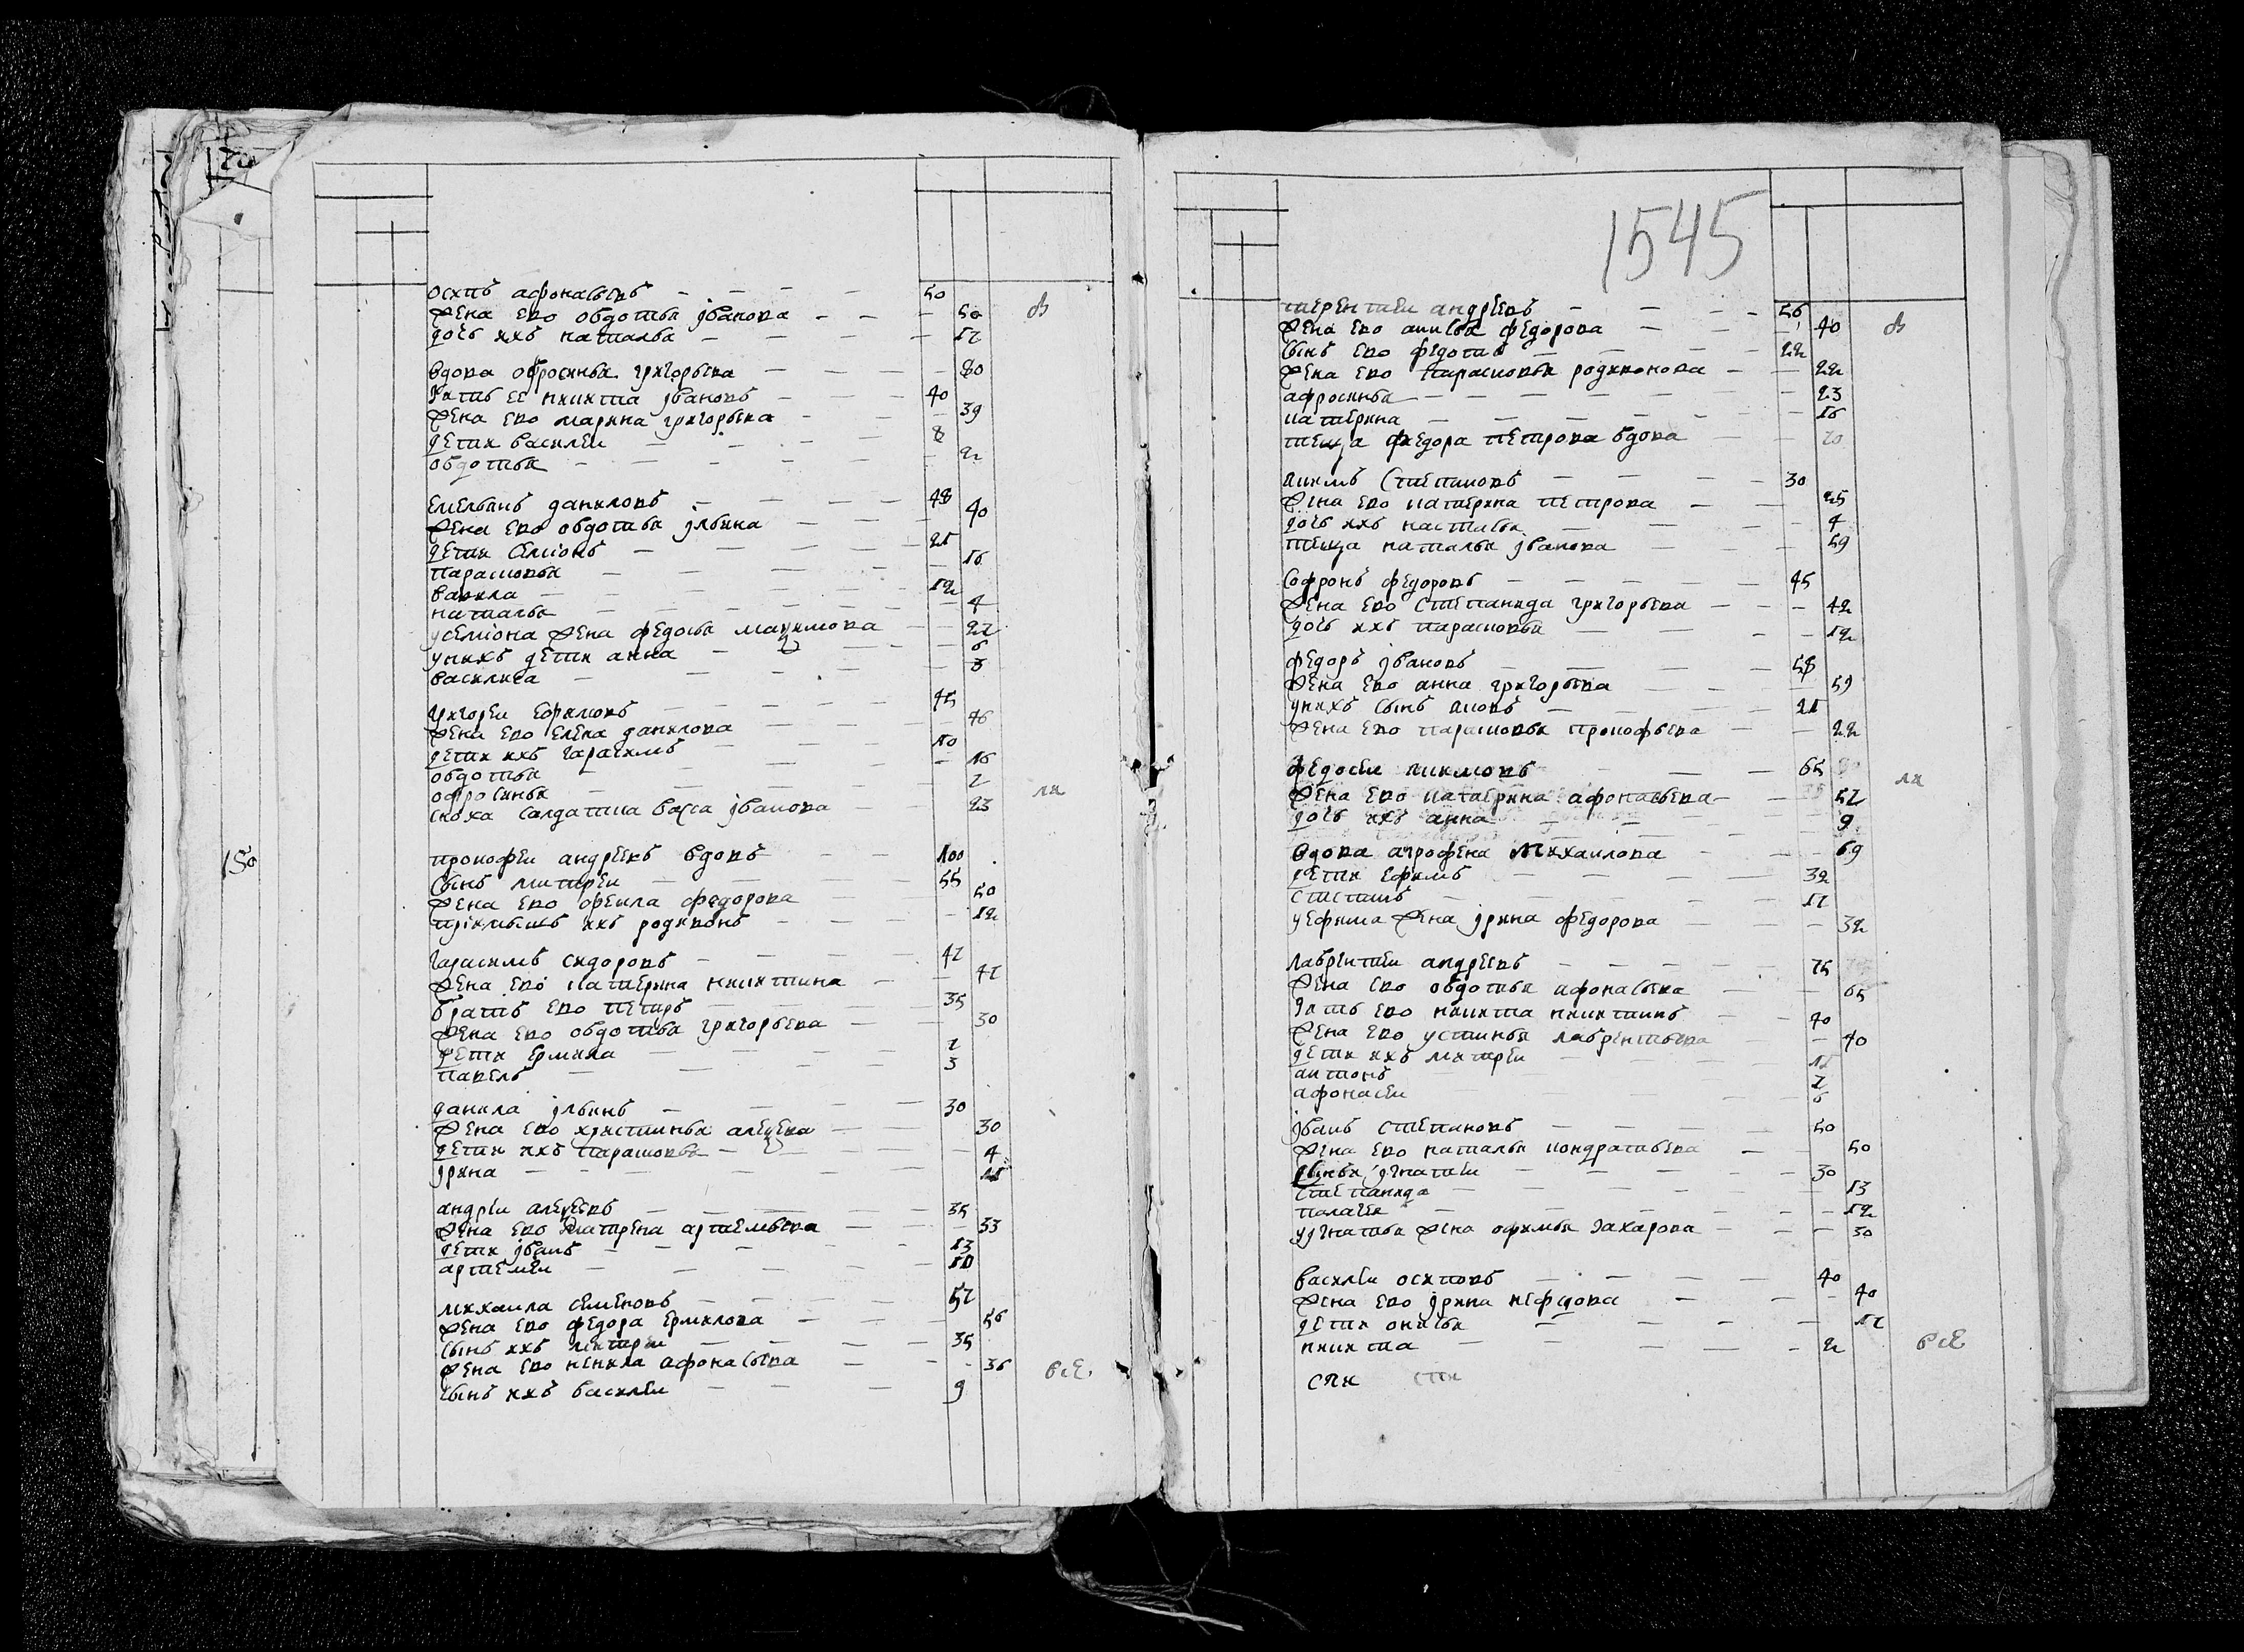 осипъ афонасьевъ 50
жена ево овдотья іванова 50
дочь ихъ наталья 17
вдова офросинья григорьева 80
зять ее никита івановъ 40
жена ево марина григорьева 39
дети василеи 8
овдотья 2
емельянъ даниловъ 48
жена ево овдотья ільина 40
дети семіонъ 21
парасковья 16
вавила 12
наталья 4
усеміона жена федосья макимова 22
унихъ дети анна 6
василиса 3
григореи ефимовъ 45
жена ево елена данилова 46
дети ихъ гарасимъ 10
овдотья 16
офросинья 2
сноха салдатка васса іванова 23
150
прокофеи андреевъ вдовъ 100
сынъ митреи 55
жена ево офекла федорова 50
пріимышъ ихъ родивонъ 12
гарасимъ сидоровъ 47
жена ево катерина никитина 47
братъ ево петръ 35
жена ево овдотья григорьева 30
дети ермила 7
павелъ 3
данила ільинъ 30
жена ево христинья алексева 30
дети ихъ парасковья 4
ірина 11
андреи алексеевъ 35
жена ево матрена артемьева 33
дети іванъ 13
артемеи 10
михаила семеновъ 57
жена ево федора ермилова 56
сынъ ихъ митреи 35
жена ево ненила афонасьева 36
сынъ ихъ василеи 9
все
1545
терентеи андреевъ 56
жена ево анисья федорова 40
сынъ ево федотъ 22
жена ево парасковья родивонова 22
афросинья 23
катерина 16
теща федора петрова вдова 70
акимъ степановъ 30
жена ево катерина петрова 25
дочь ихъ настасья 4
теща наталья іванова 59
софронъ федоровъ 45
жена ево степанида григорьева 42
дочь ихъ парасковья 12
федоръ івановъ 58
жена ево анна григорьева 59
унихъ сынъ яковъ 21
жена ево парасковья прокофьева 22
федосеи акимовъ 65
жена ево катерина афонасьева 57
дочь ихъ анна 9
вдова агрофена михаилова 69
дети ефимъ 32
степанъ 17
уефима жена ірина федорова 32
лаврентеи андреевъ 75
жена ево овдотья афонасьева 65
зять ево никита никитинъ 40
жена ево устинья лаврентьева 40
дети ихъ митреи 11
антонъ 7
афонасеи 6
іванъ степановъ 50
жена ево наталья кондратьева 50
ігнатеи 30
степанида 13
палагея 12
уігнатья жена офимья захарова 30
василеи осиповъ 40
жена ево ірина нефедова 40
дети онисья 17
никита 2
все
спи спи